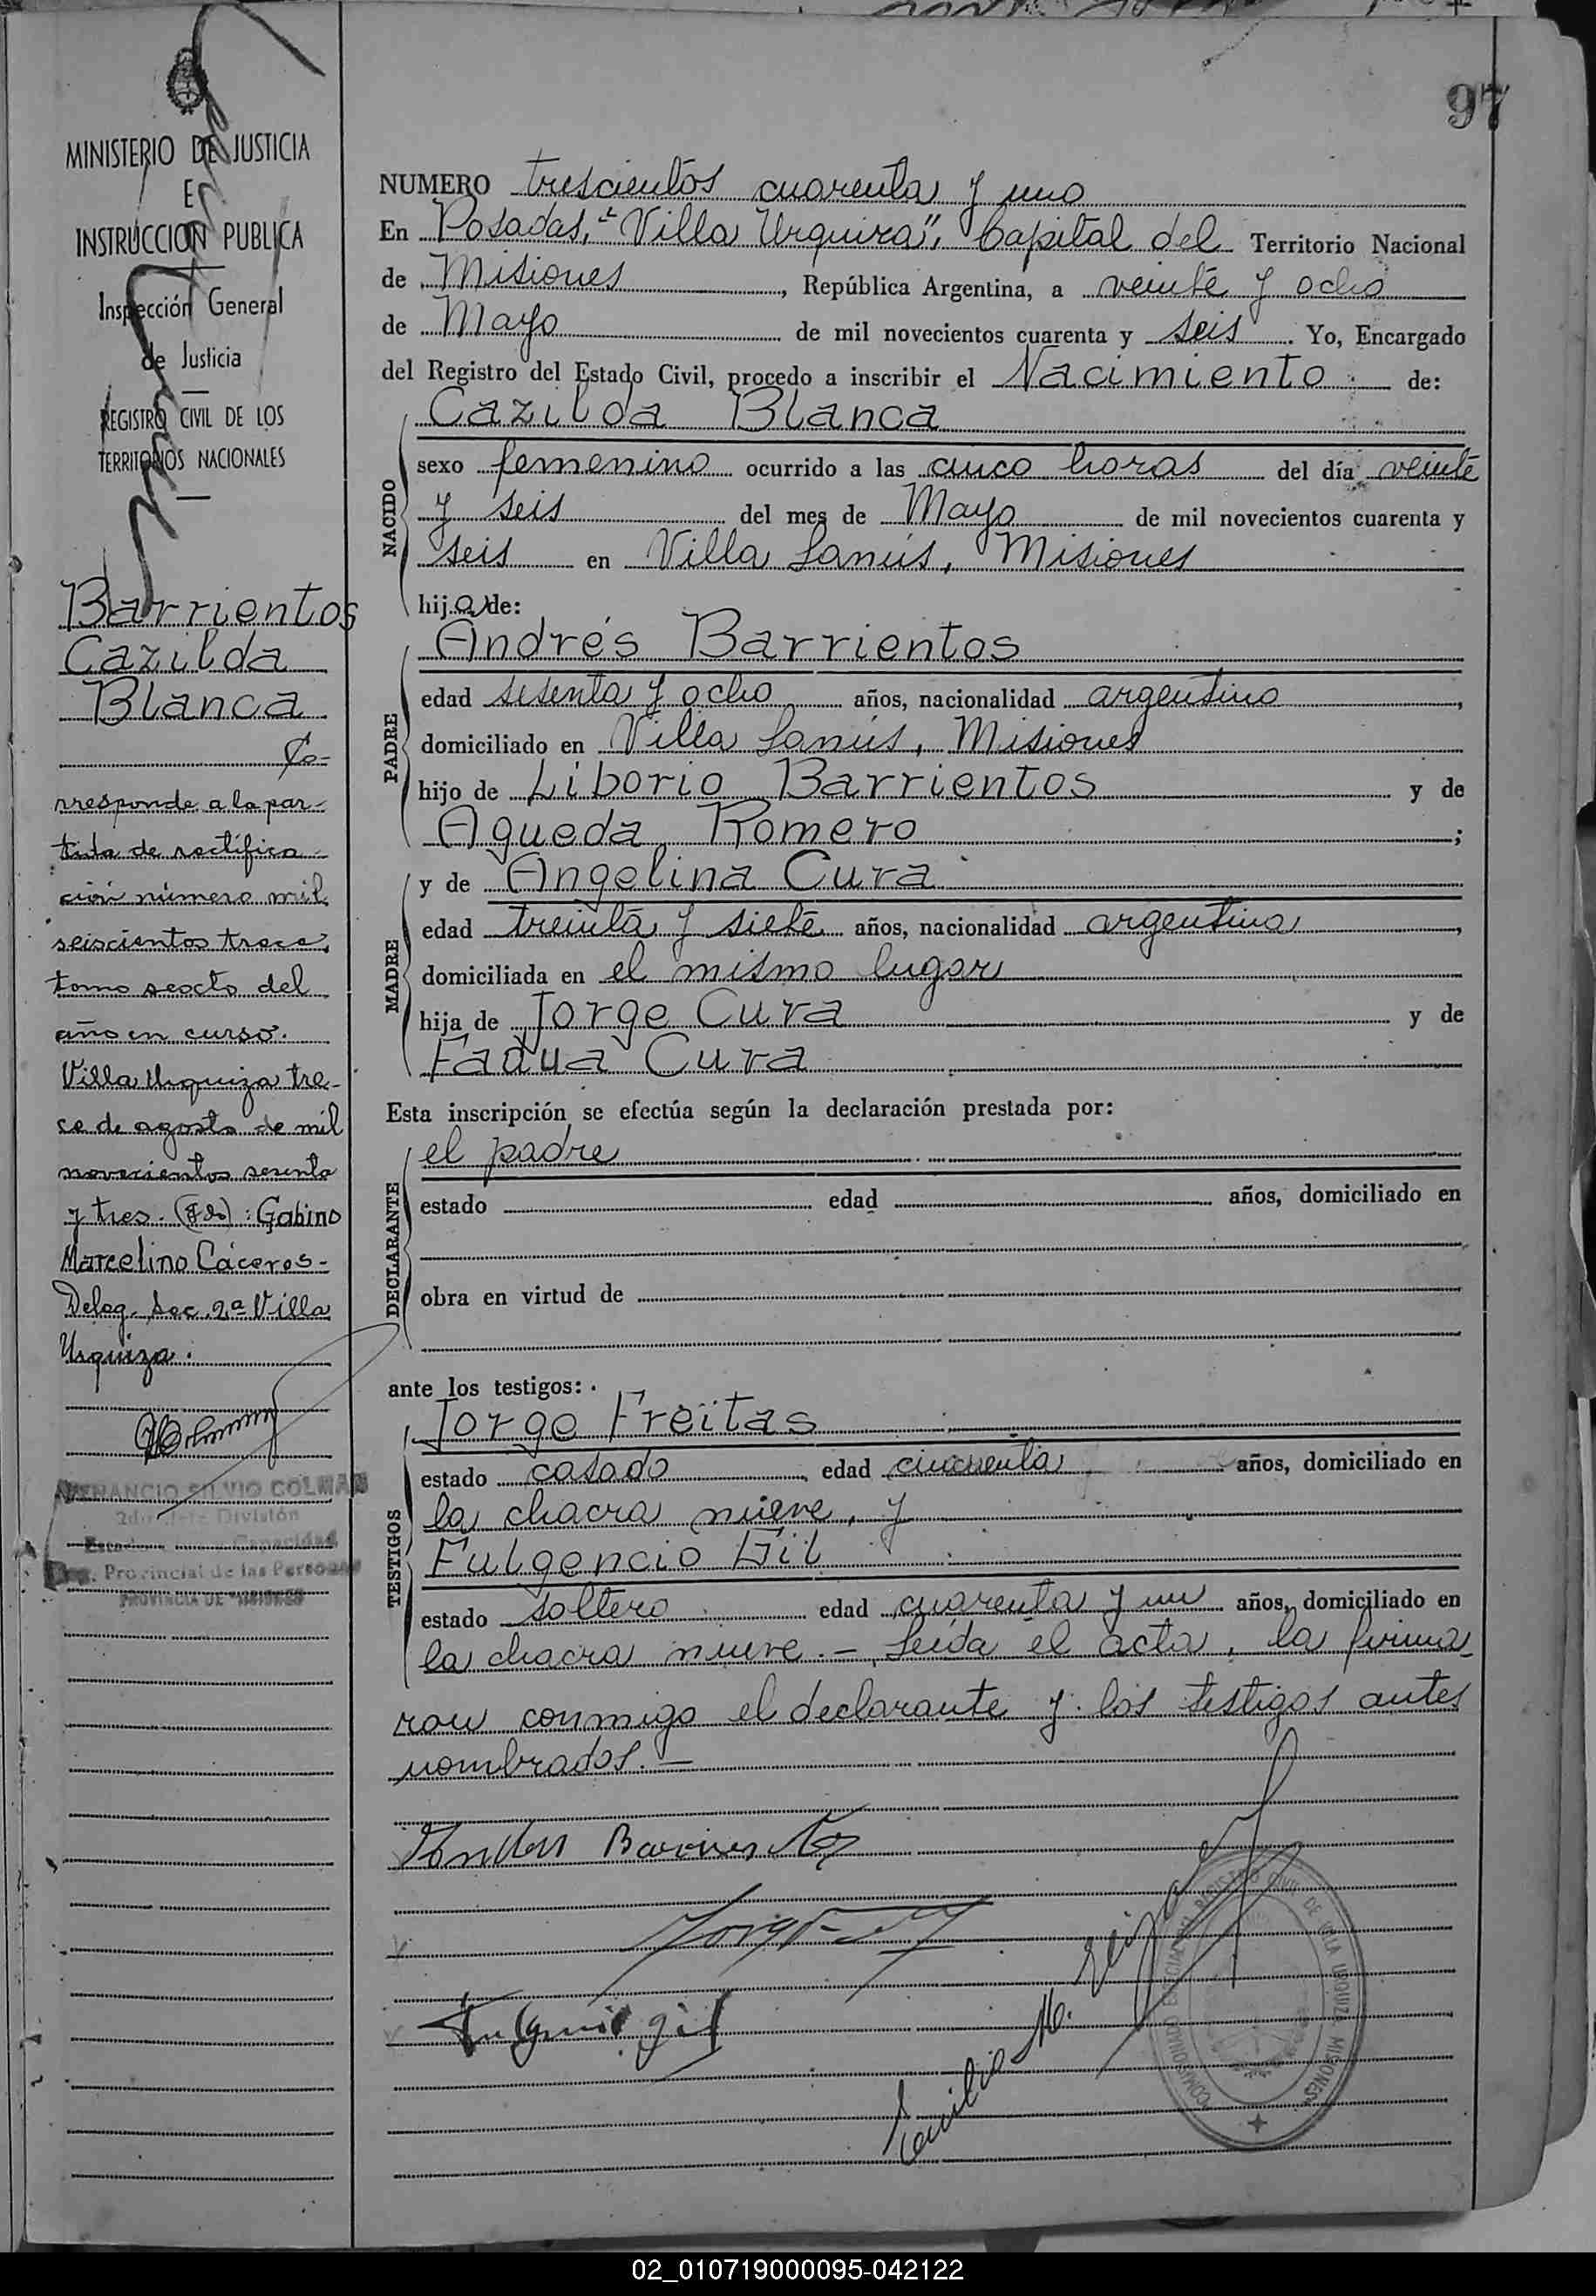 97
MINISTERIO DE JUSTICIA
E
INSTRUCCION PUBLICA
Inspección General
de Justicia
REGISTRO CIVIL DE LOS
TERRITORIOS NACIONALES
Barrientos
Cazilda
Blanca
Co-
rresponde a la par-
tida de rectifica-
ción número mil
seiscientos trece,
tomo sexto del
año en curso.
Villa Urquiza tre-
ce de agosto de mil
novecientos sesenta
y tres. (Fdo): Gabino
Marcelino Cáceres-
Deleg. Sec. 2ª Villa
Urquiza.
VENANCIO SILVIO COLMAN
2do Jefe División
Capacidad
Provincial de las Personas
PROVINCIA DE MISIONES
NUMERO trescientos cuarenta y uno
En Posadas, "Villa Urquiza", Capital del Territorio Nacional
de Misiones, República Argentina, a veinte y ocho
de Mayo de mil novecientos cuarenta y seis. Yo, Encargado
del Registro del Estado Civil, procedo a inscribir el Nacimiento de:
Cazilda Blanca
NACIDO
sexo femenino ocurrido a las cinco horas del día veinte
y seis del mes de Mayo de mil novecientos cuarenta y
seis en Villa Lanús, Misiones
hija de:
Andrés Barrientos
PADRE
edad sesenta y ocho años, nacionalidad argentino,
domiciliado en Villa Lanús, Misiones
hijo de Liborio Barrientos y de
Agueda Romero;
y de Angelina Cura
MADRE
edad treinta y siete años, nacionalidad argentina,
domiciliada en el mismo lugar
hija de Jorge Cura y de
Fadua Cura
Esta inscripción se efectúa según la declaración prestada por:
el padre
DECLARANTE
estado edad años, domiciliado en
obra en virtud de
ante los testigos:
Jorge Freitas
TESTIGOS
estado casado edad cincuenta años, domiciliado en
la chacra nueve, y
Fulgencio Gil
estado soltero edad cuarenta y un años, domiciliado en
la chacra nueve.- Leída el acta, la firma-
ron conmigo el declarante y los testigos antes
nombrados.-
Andres Barrientos
Fulgencio gil
Emilio M.
REGISTRO CIVIL DE VILLA URQUIZA MISIONES
02_010719000095-042122